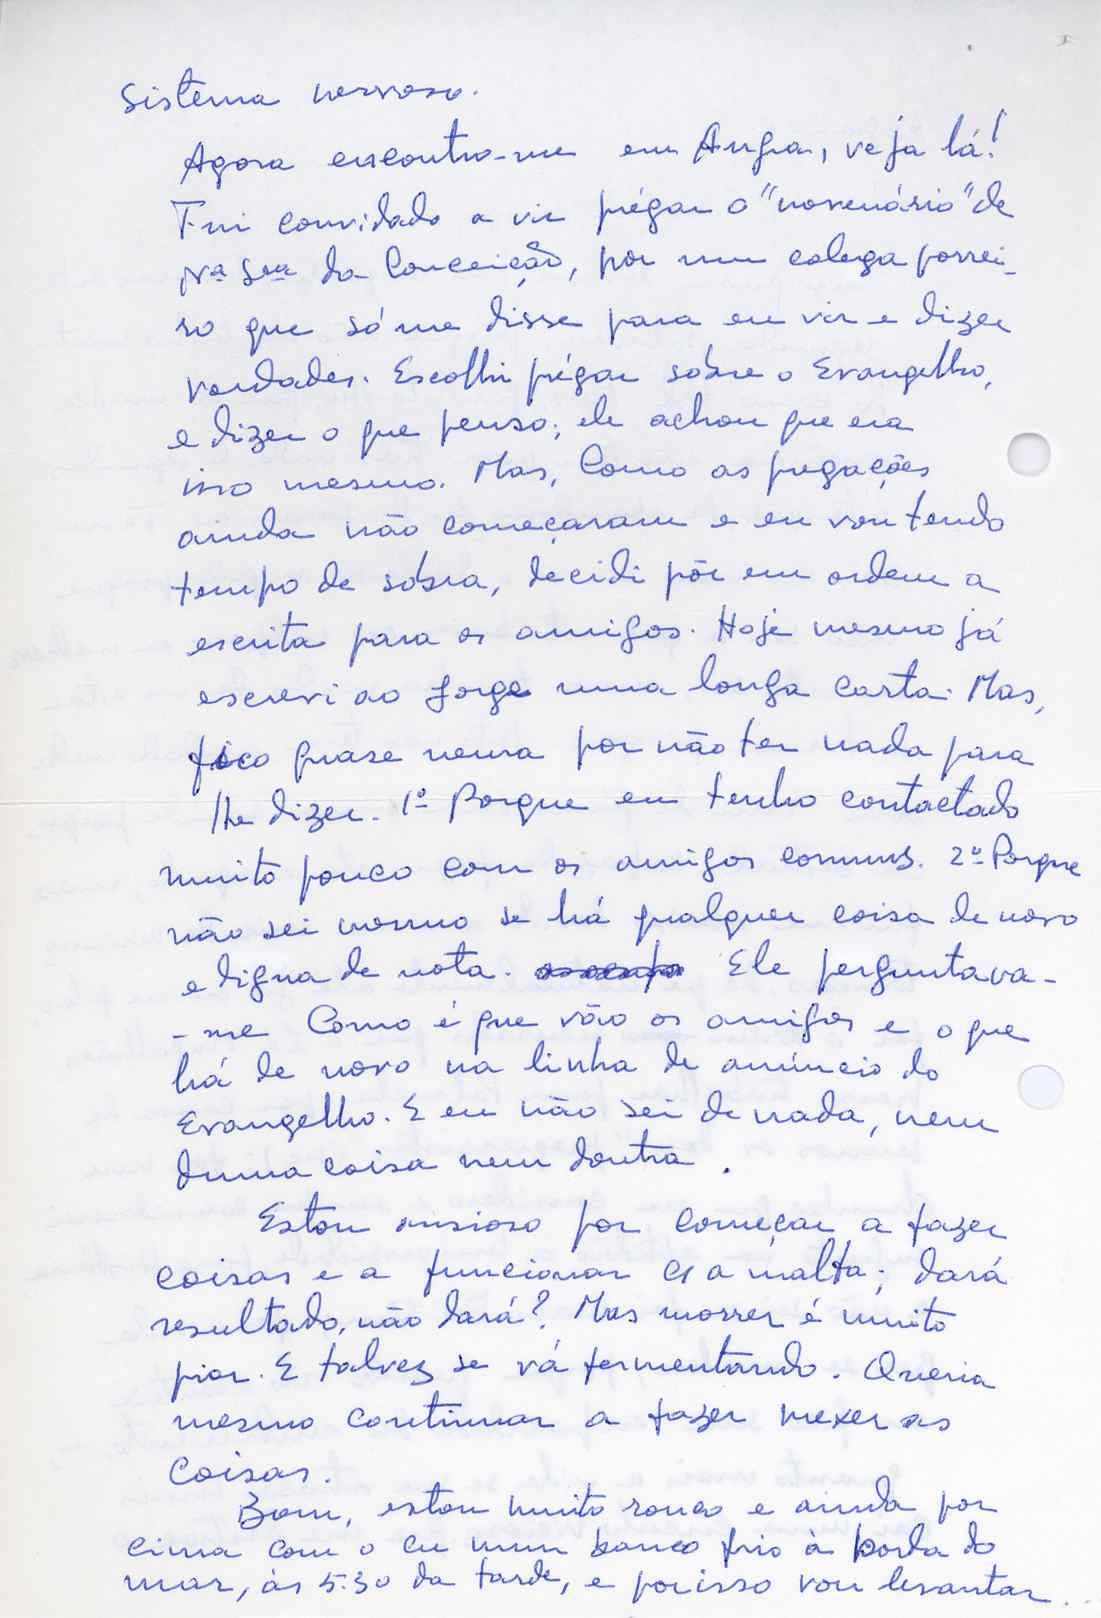 sistema nervoso.
Agora encontro-me em Angra, veja lá!
Fui convidado a vir prégar o "novenário" de
Nª Srª da Conceição, por um colega porrei-
ro que só me disse para eu vir e dizer
verdades. Escolhi prégar sobre o Evangelho,
e dizer o que penso; ele achou que era
isso mesmo. Mas, como as pregações
ainda não começaram e eu vou tendo
tempo de sobra, decidi pôr em ordem a
escrita para os amigos. Hoje mesmo já
escrevi ao Jorge uma longa carta. Mas,
fico quase neura por não ter nada para
lhe dizer. 1º Porque eu tenho contactado
muito pouco com os amigos comuns. 2º Porque
não sei mesmo se há qualquer coisa de novo
e digna de nota. Ele perguntava-
-me como é que vão os amigos e o que
há de novo na linha de anúncio do
Evangelho. E eu não sei de nada, nem
duma coisa nem doutra.
Estou ansioso por começar a fazer
coisas e a funcionar c/ a malta; dará
resultado, não dará? Mas morrer é muito
pior. E talvez se vá fermentando. Queria
mesmo continuar a fazer mexer as
coisas.
Bom, estou muito rouco e ainda por
cima com o cu num banco frio à borda do
mar, às 5.30 da tarde, e por isso vou levantar...